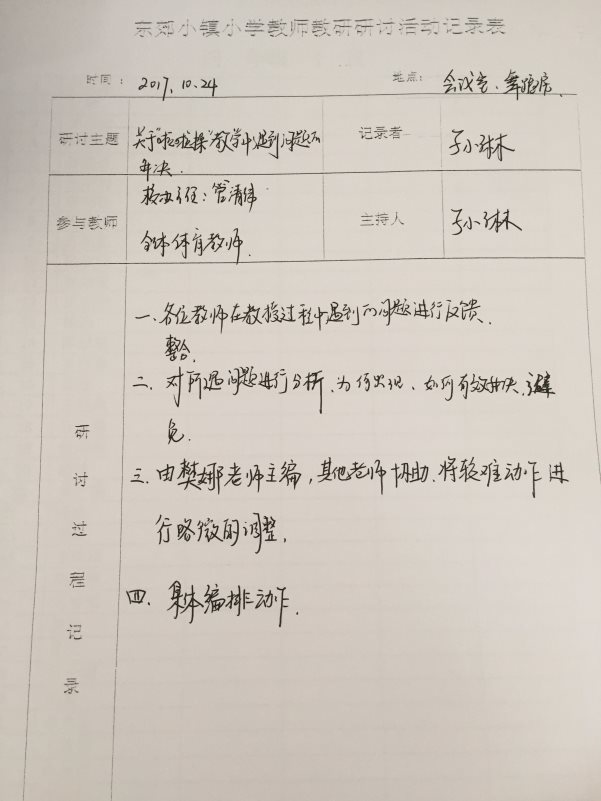 东郊小镇小学教师教研研讨活动记录表
时间： 2017.10.24 地点： 会议室、舞蹈房.
研讨主题 关于"啦啦操"教学中遇到问题的 记录者 于小琳
解决.
参与教师 校办主任：管清伟 主持人 于小琳
全体体育教师.
研讨过程记录
一. 各位教师在教授过程中遇到的问题进行反馈.
整合.
二. 对所遇问题进行分析、为何出现、如何有效解决、避
免.
三. 由樊娜老师主编，其他老师协助.将较难动作进
行略微的调整.
四. 集体编排动作.